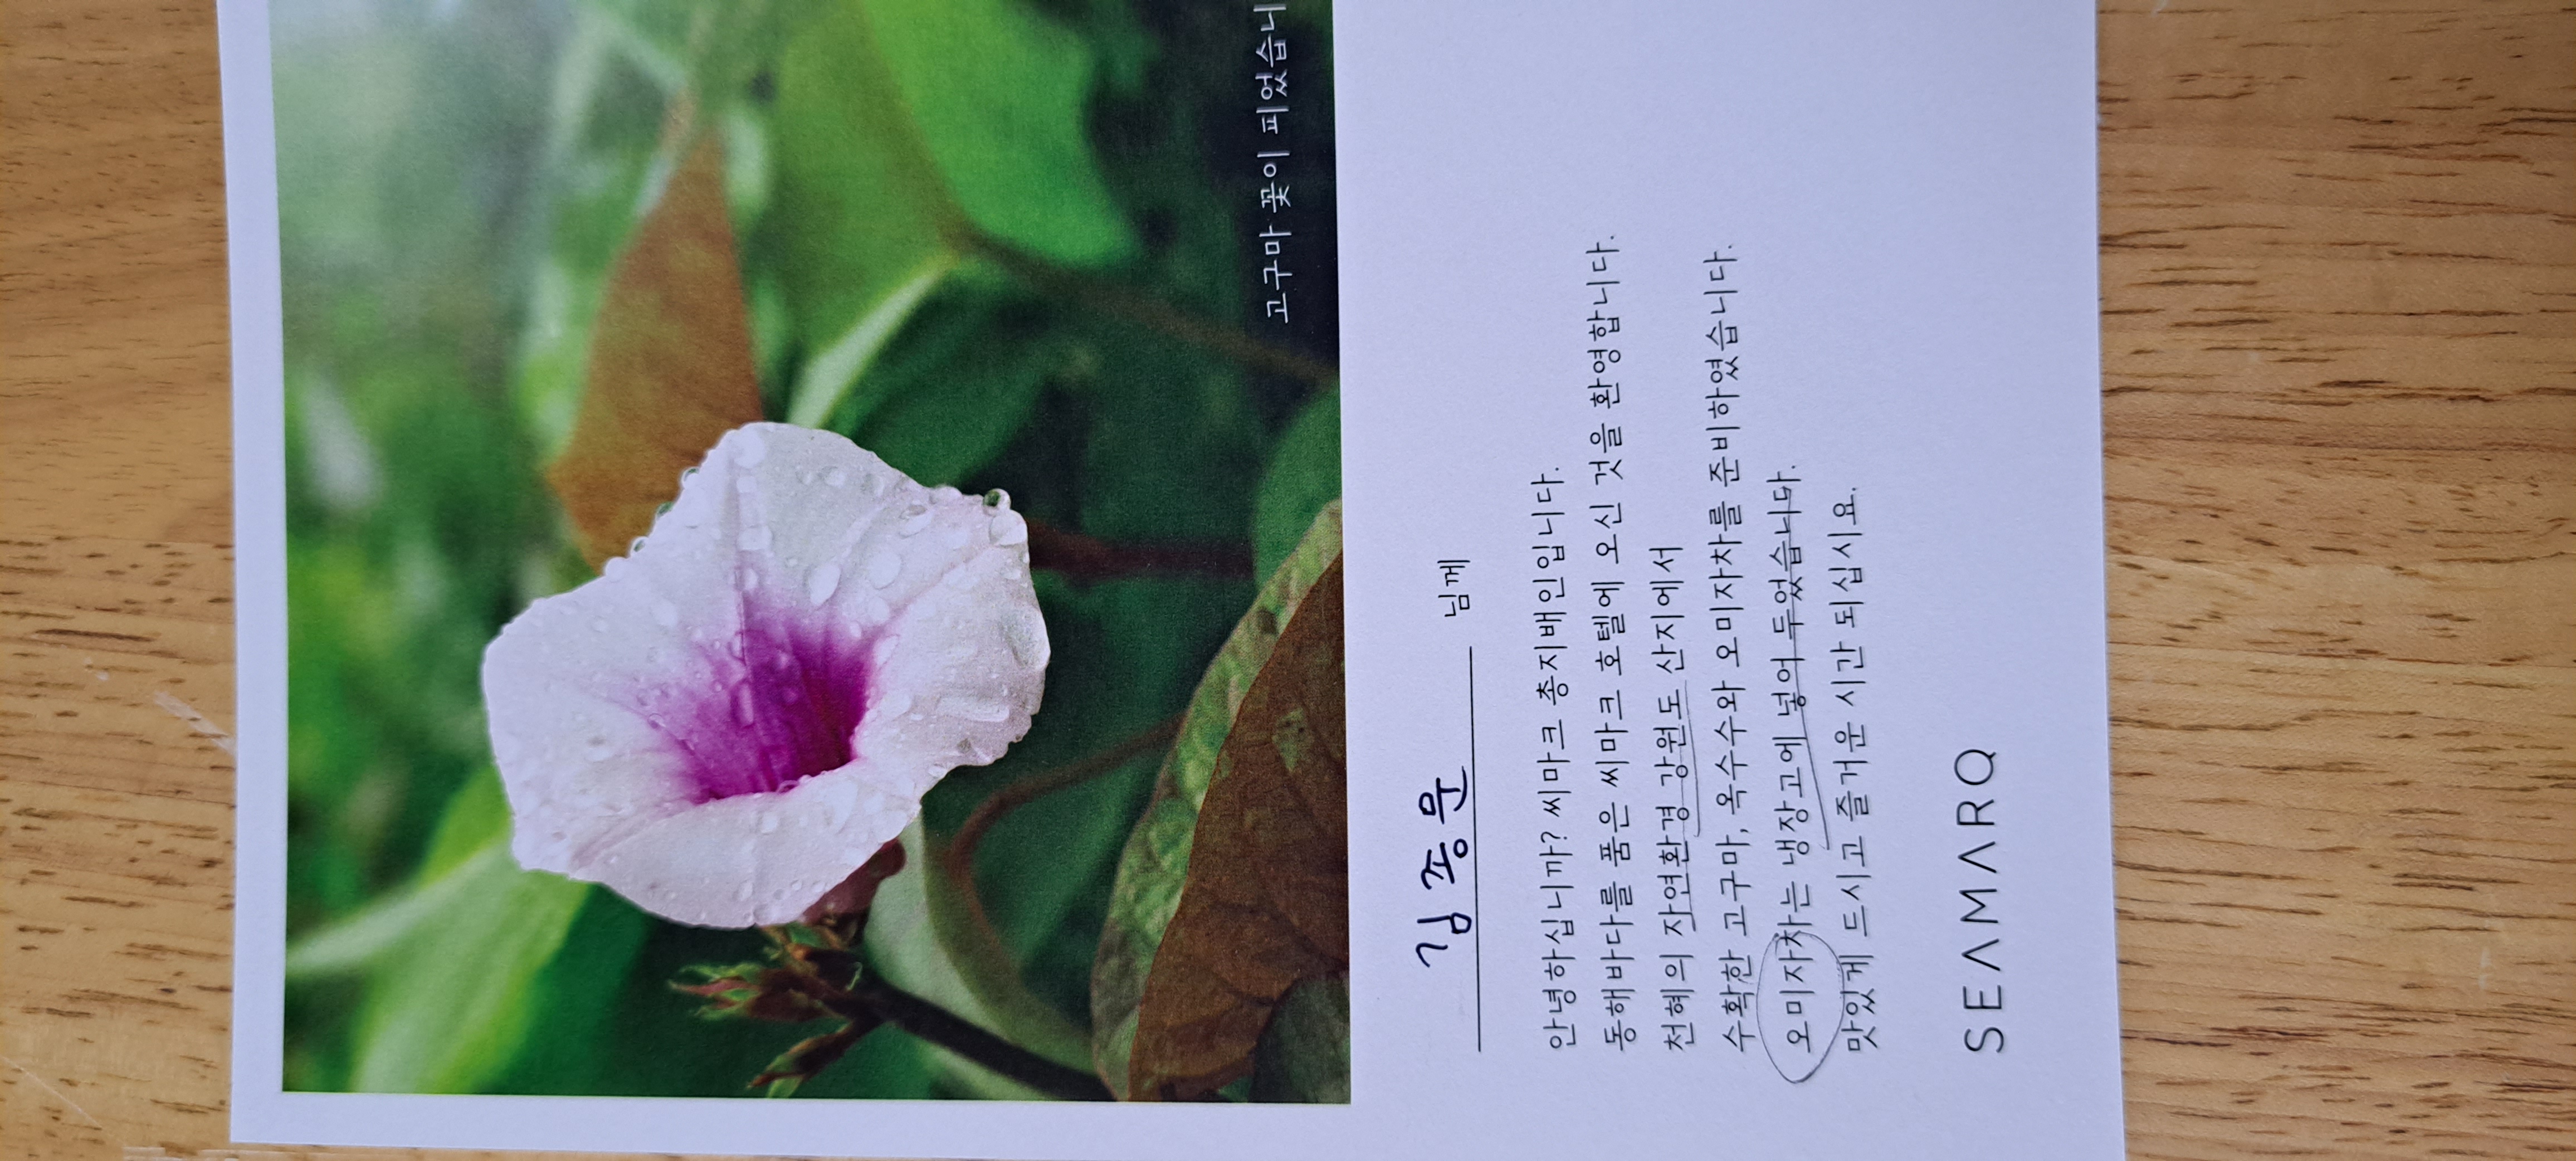 고구마 꽃이 피었습니
김종문 님께
안녕하십니까? 씨마크 총지배인입니다.
동해바다를 품은 씨마크 호텔에 오신 것을 환영합니다.
천혜의 자연환경 강원도 산지에서
수확한 고구마, 옥수수와 오미자차를 준비하였습니다.
오미자차는 냉장고에 넣어 두었습니다.
맛있게 드시고 즐거운 시간 되십시요.
SEAMARQ